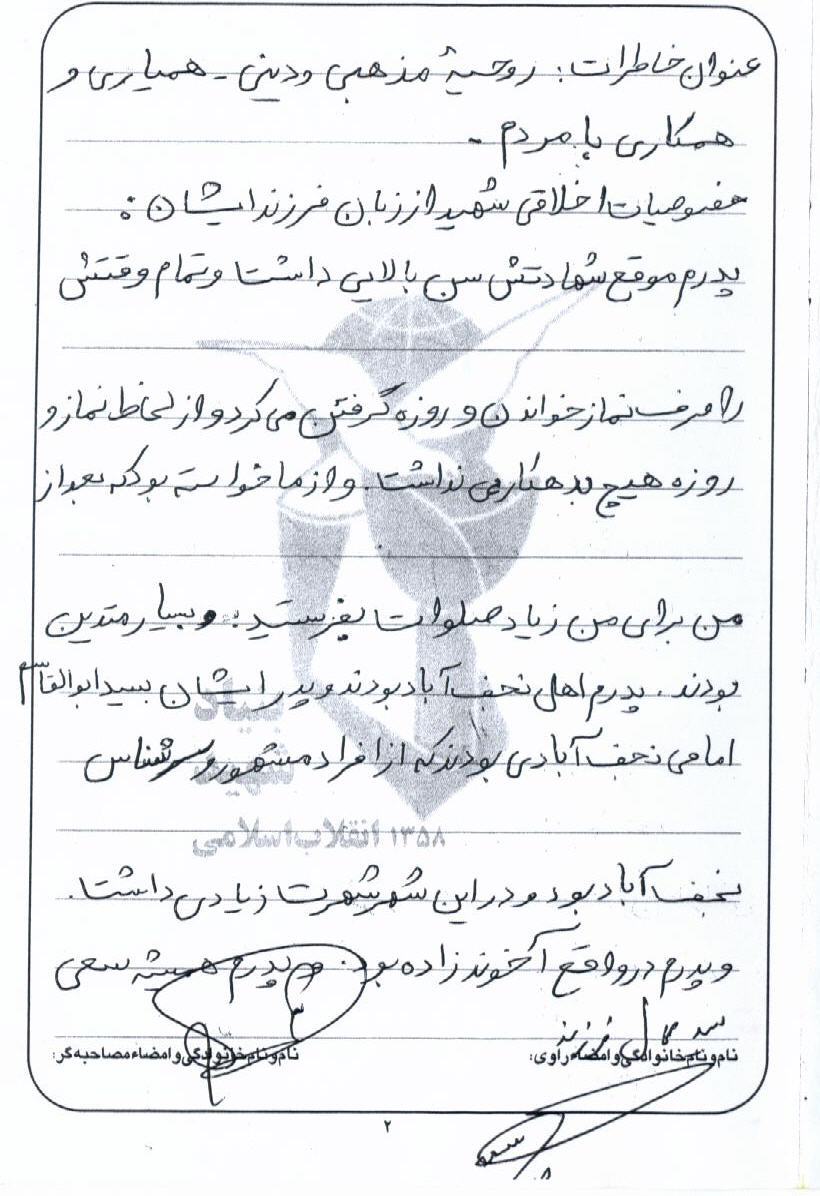 عنوان خاطرات: روحیهٔ مذهبی ودینی - همیاری و
همکاری با مردم -
خصوصیات اخلاقی شهید از زبان فرزند ایشان:
پدرم موقع شهادتش سن بالایی داشت و تمام وقتش
را صرف نماز خواندن و روزه گرفتن می کرد و از لحاظ نماز و
روزه هیچ بدهکاریی نداشت. و از ما خواسته بود که بعد از
من برای من زیاد صلوات بفرستید. و بسیار متدین
بودند. پدرم اهل نجف آباد بودند و پدر ایشان سید ابوالقاسم
امامی نجف آبادی بودند که از افراد مشهور و سرشناس
بنیاد
شهید
انقلاب اسلامی ۱۳۵۸
نجف آباد بود و در این شهر شهرت زیادی داشت.
و پدرم در واقع آخوند زاده بود. و پدرم همیشه سعی
نام و نام خانوادگی و امضاء راوی:
نام و نام خانوادگی و امضاء مصاحبه گر:
۲